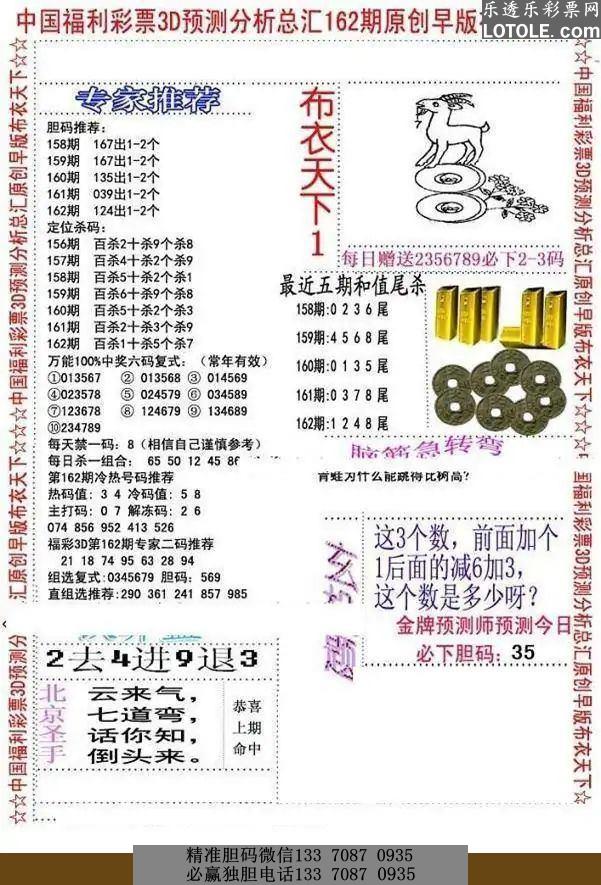 中国福利彩票3D预测分析总汇162期原创早版
乐透乐彩票网
LOTOLE.com
专家推荐
胆码推荐：
158期 167出1-2个
159期 167出1-2个
160期 135出1-2个
161期 039出1-2个
162期 124出1-2个
定位杀码：
156期 百杀2十杀9个杀8
157期 百杀4十杀2个杀9
158期 百杀5十杀1个杀2
159期 百杀6十杀9个杀8
160期 百杀5十杀8个杀3
161期 百杀2十杀3个杀9
162期 百杀1十杀5个杀7
万能100%中奖六码复式：（常年有效）
①013567 ②013568 ③014569
④023578 ⑤024579 ⑥034589
⑦123678 ⑧124679 ⑨134689
⑩234789
每天禁一码：8（相信自己谨慎参考）
每日杀一组合： 65 50 12 45 86
第162期冷热号码推荐
热码值：3 4 冷码值：5 8
主打码：0 7 解冻码：2 6
074 856 952 413 526
福彩3D第162期专家二码推荐
21 18 74 95 63 28 94
组选复式:0345679 胆码：569
直组选推荐:290 361 241 857 985
布衣天下1
每日赠送2356789必下2-3码
最近五期和值尾杀
158期:0 2 3 6 尾
159期:4 5 6 8 尾
160期:0 1 3 5 尾
161期:0 3 7 8 尾
162期:1 2 4 8 尾
脑筋急转弯
青蛙为什么能跳得比树高?
这3个数，前面加个
1后面的减6加3，
这个数是多少呀?
金牌预测师预测今日
必下胆码：35
2去4进9退3
北京圣手
云来气，
七道弯，
话你知，
倒头来。
恭喜
上期
命中
☆☆中国福利彩票3D预测分
汇原创早版布衣天下☆☆☆中国福利彩票3D预测分析总汇原创早版布衣天下☆
☆中国福利彩票3D预测分析总汇原创早版布衣天下☆☆
国福利彩票3D预测分析总汇原创早版布衣天下☆
精准胆码微信133 7087 0935
必赢独胆电话133 7087 0935